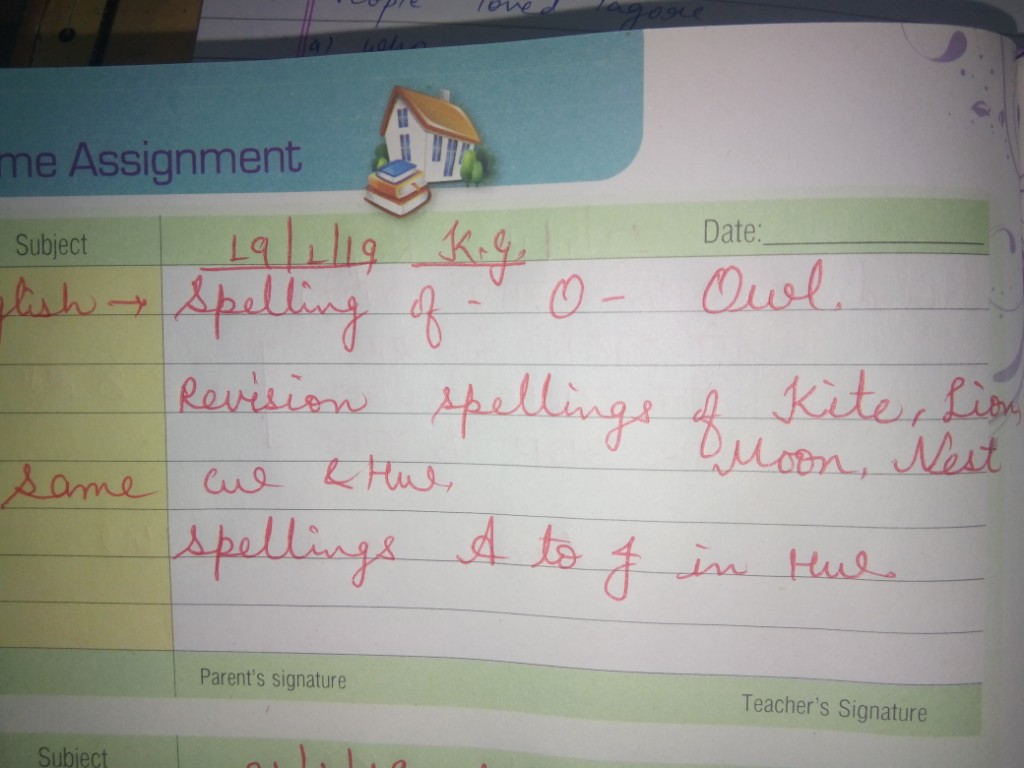 People loved Tagore
(a) who
me Assignment
Subject 19/1/19 K.g. Date:
glish → Spelling of - O - Owl.
Revision spellings of Kite, Lion,
Moon, Nest
Same CW & HW,
spellings A to J in HW.
Parent's signature
Teacher's Signature
Subject